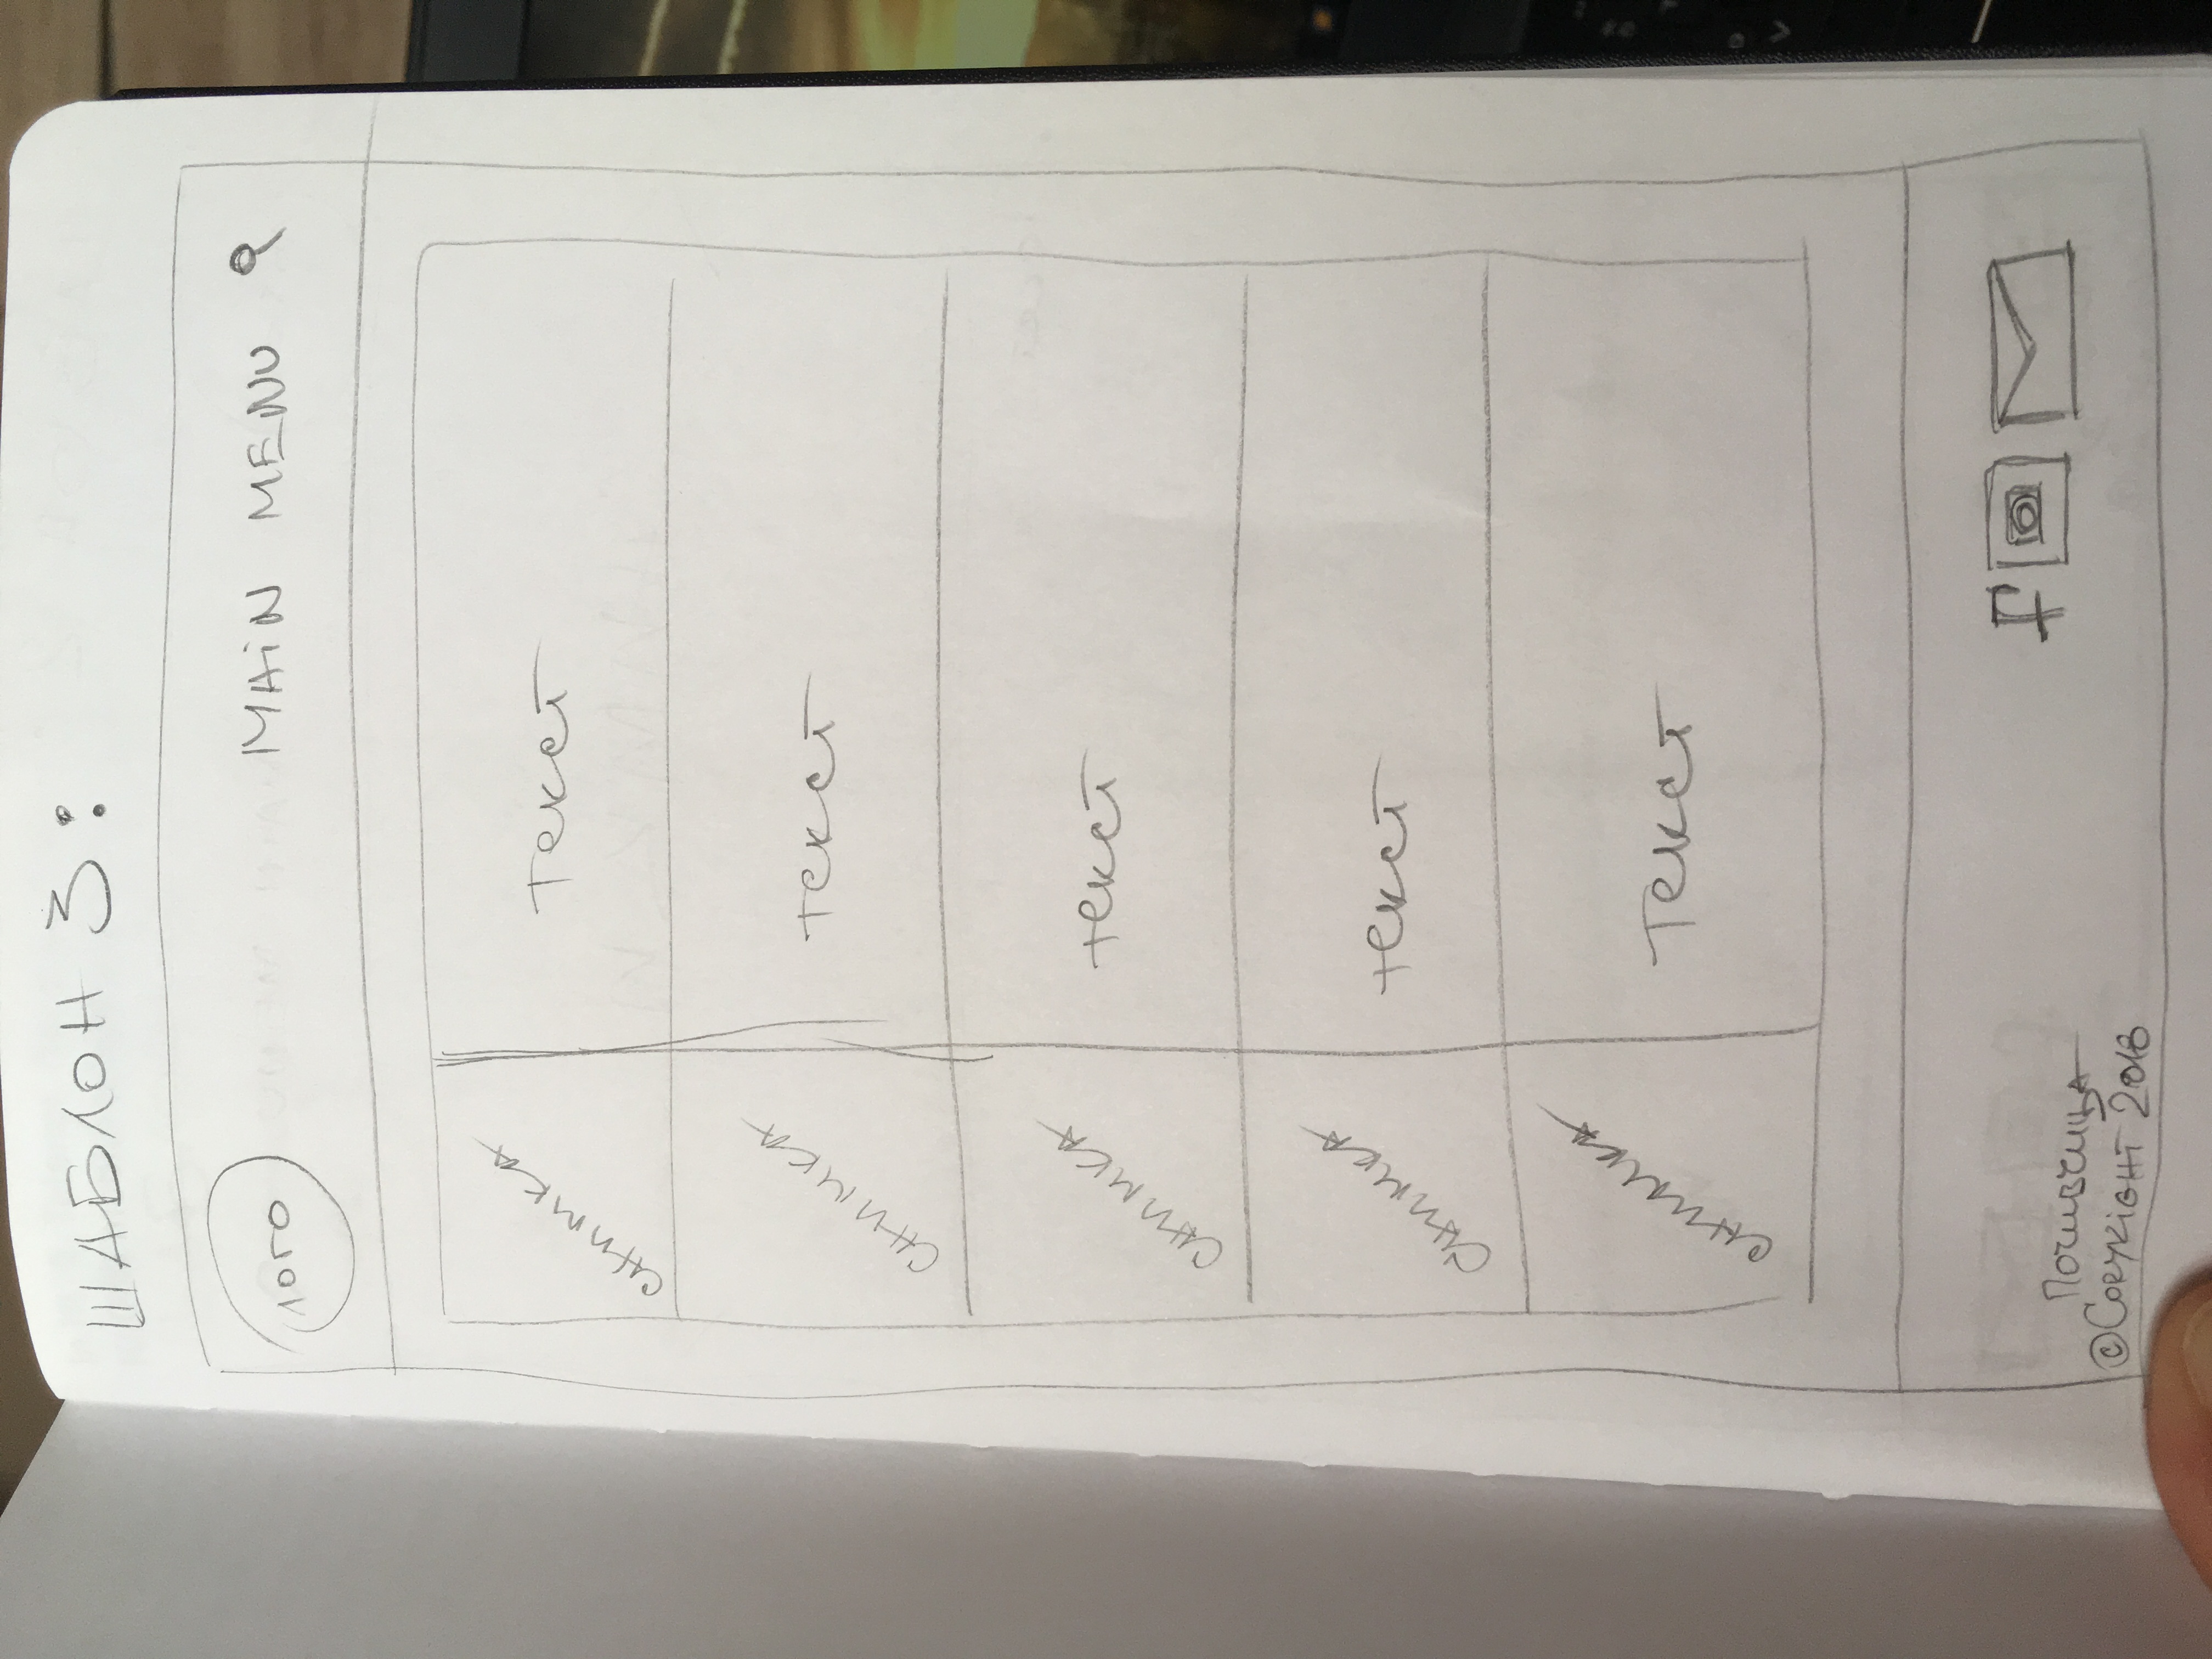 ШАБЛОН 3:
лого
MAIN MENU
снимка
текст
снимка
текст
снимка
текст
снимка
текст
снимка
Текст
f
Почивчица
©Copyright 2018